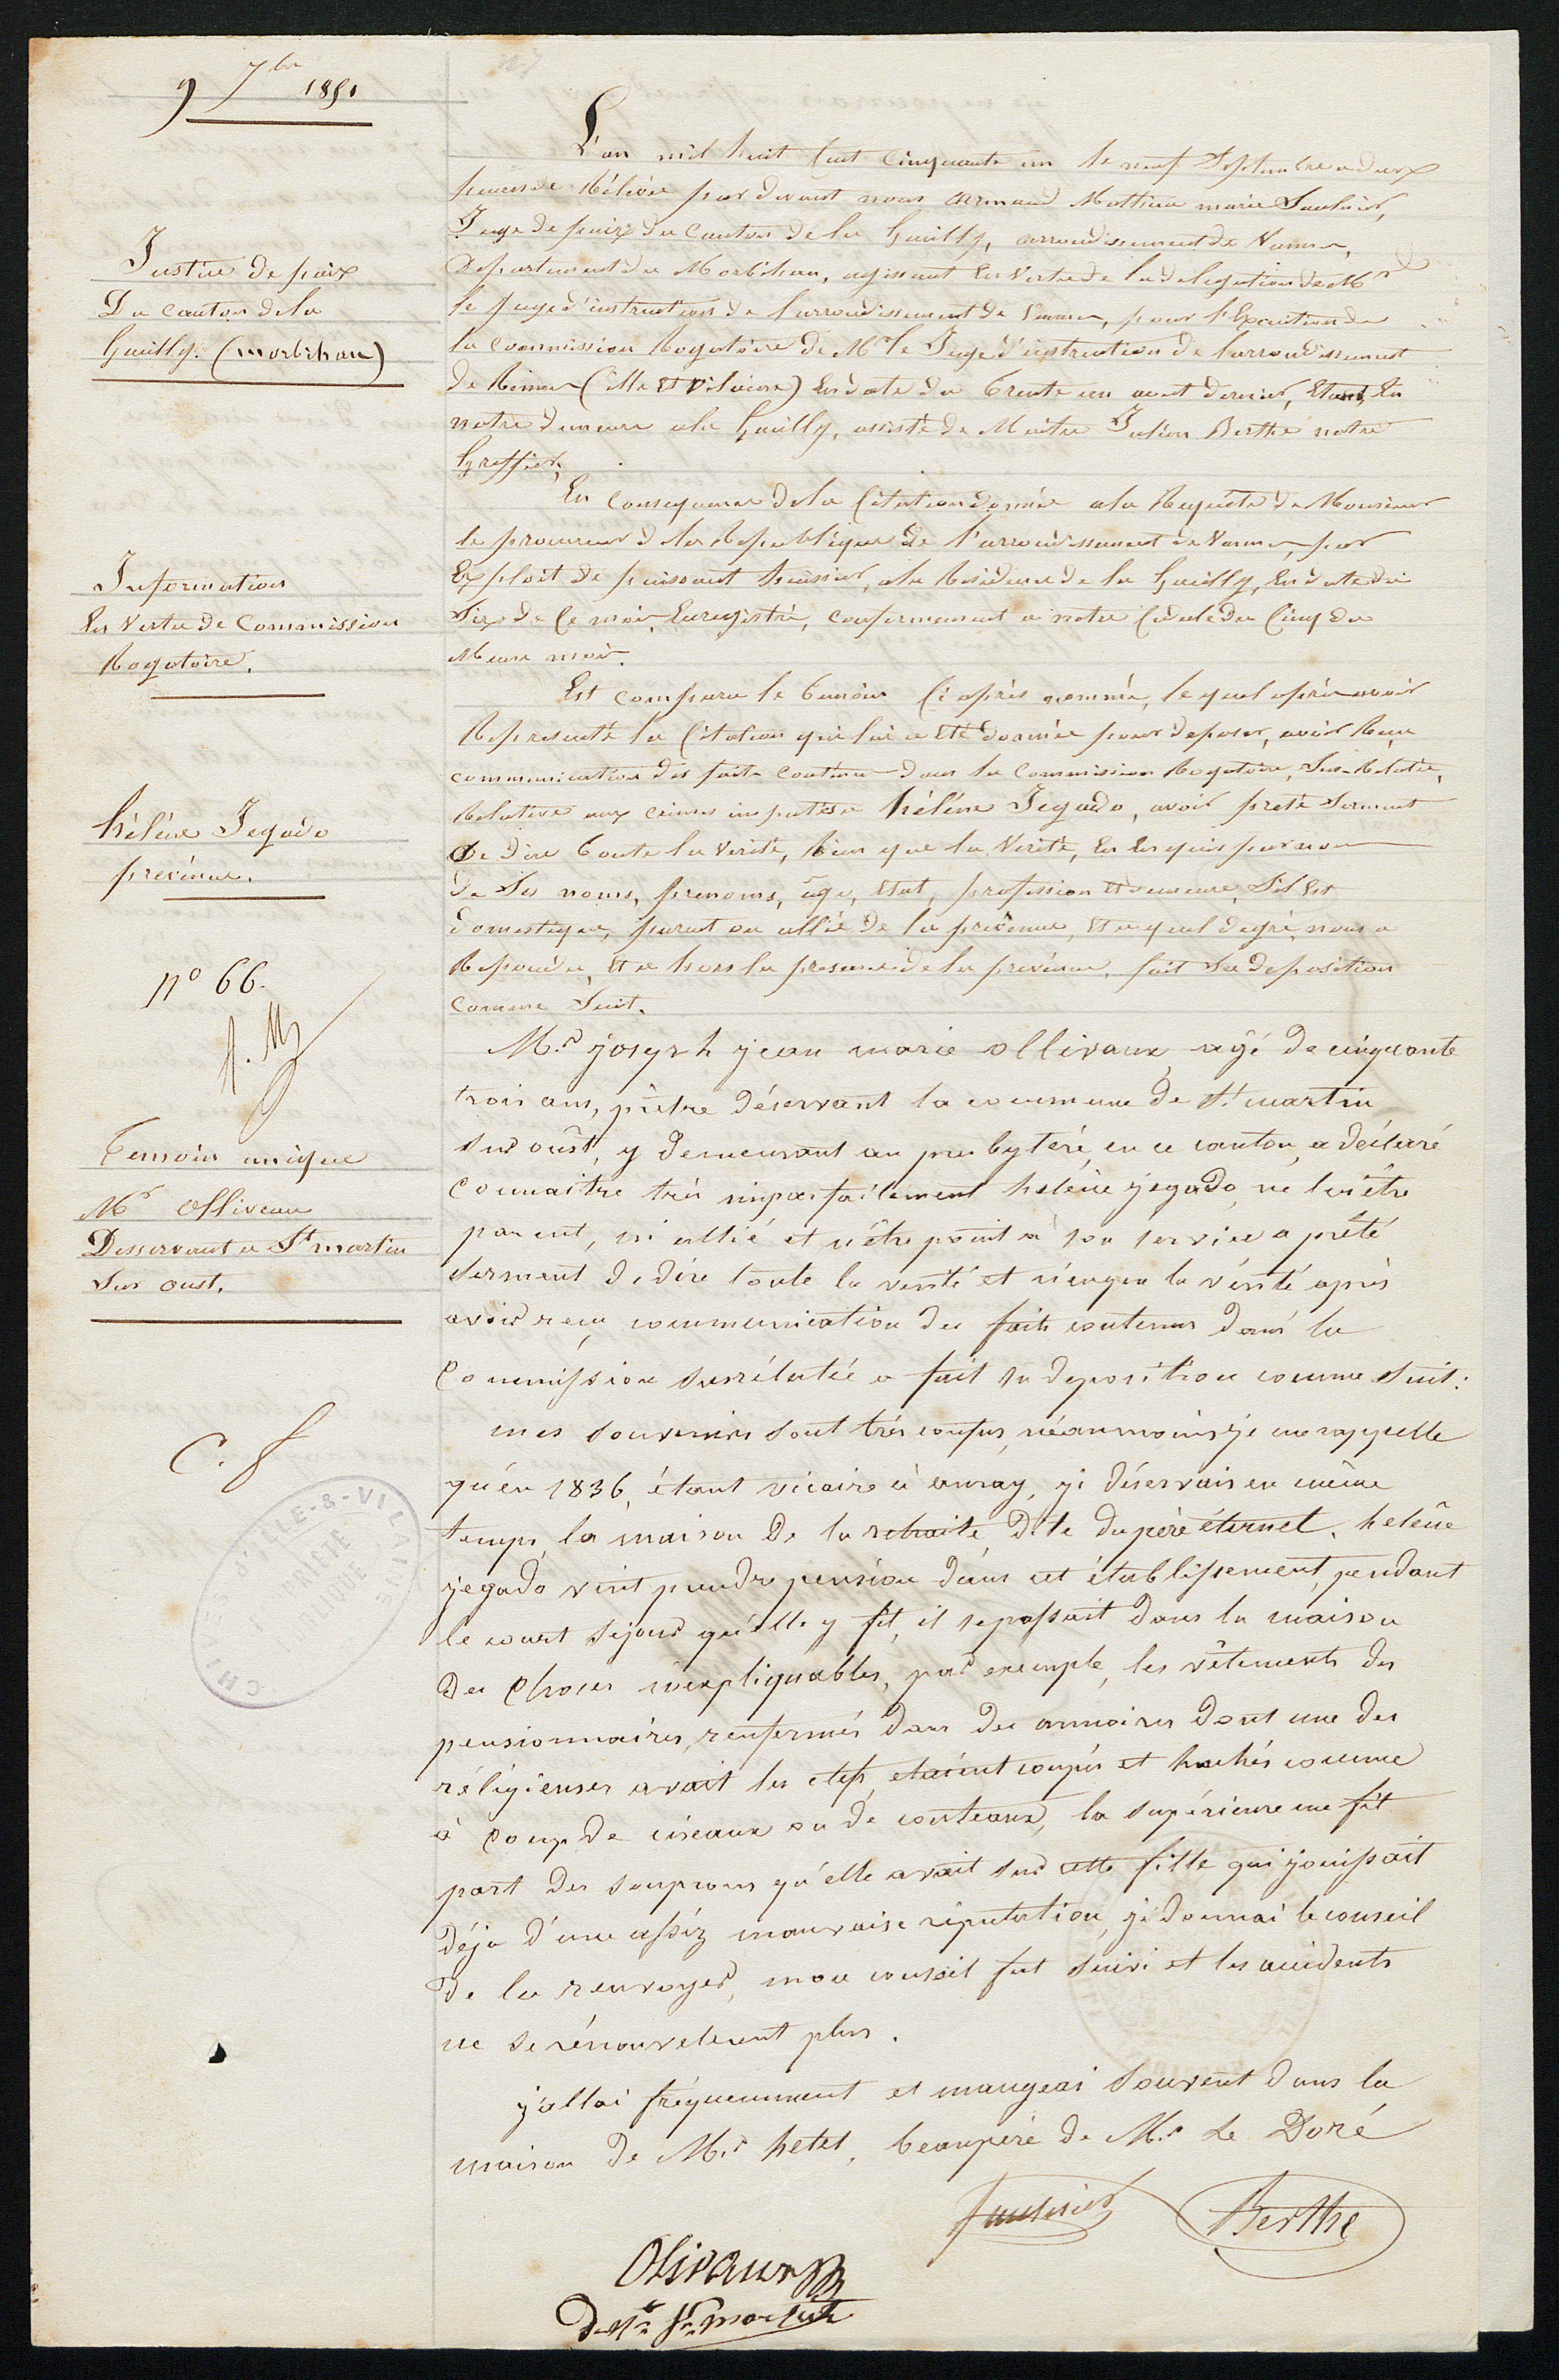 9 7bre 1851
Justice de paix
Du Canton de la
Gacilly. (morbihan)
Information
En Vertu de Commission
Rogatoire.
hélène Jegado
prévenue.
n° 66.
Temoin unique
Mr Olliveau
Desservant a St martin
Sur oust.
C. f
L'an mil huit Cent Cinquante un le neuf Septembre a deux
heures de Rélévée par devant nous Armand Mathieu marie Saulnier,
Juge de paix du Canton de la Gacilly, arrondissement de Vannes,
Departement du Morbihan, agissant En Vertu de la delegation de Mr
le Juge d'instruction de l'arrondissement de Vannes, pour l'Execution de
la Commission Rogatoire de Mr le Juge d'instruction de l'arrondissement
de Rennes (ille Et Vilaine) En date du trente un aout dernier, Etant En
notre demeure a la Gacilly, assisté de Maitre Julien Berthe notre
Greffier.
En Consequence de la Citation donnée a la Requête de Monsieur
le procureur de la Republique de l'arrondissement de Vannes, par
Exploit de puissant huissier, a la Residence de la Gacilly, En date du
Six de Ce mois, Enregistré, conformement a notre Cedule du Cinq du
Meme mois.
Est comparu le temoin Ci après nommé, le quel après avoir
Representé la Citation qui lui a Eté donnée pour deposer, avoir Reçu
communication des faits contenus dans la Commission Rogatoire, Sus Relatée,
Relative aux crimes imputés a hélène Jegado, avoir preté Serment
De dire toute la Verité, Rien que la Verité, En Enquis par nous
de Ses noms, prenoms, âge, Etat, profession Et demeure, S'il Est
domestique, parent ou allié de la prévenue, Et a quel degré, nous a
Repondu, Et a hors la presence de la prevenue, fait Sa deposition
comme Suit.
M.r joseph jean marie ollivaux, agé de cinquante
trois ans, prêtre déservant la commune de St martin
sur oust, y demeurant au presbytére, en ce canton, a déclaré
connaitre très imparfaitement helène jegado, ne lui être
parent, ni allié et n'être point à son service a prêté
serment de dire toute la verité et rien que la vérité après
avoir reçu communication des faits contenus dans la
Commission susrélatée a fait sa déposition comme suit:
mes souvenirs sont très confus, néanmoins je me rappelle
qu'en 1836, étant vicaire à auray, je déservais en même
temps la maison de la retraite, dite du père éternel. helène
jegado vint prendre pension dans cet établissement, pendant
le court séjour qu'elle y fit, il se passait dans la maison
des choses inexpliquables, par exemple, les vêtements des
pensionnaires, renfermés dans des armoires dont une des
réligieuses avait les clefs, etaient coupés et hachés comme
à coup de ciseaux ou de couteaux, la supérieure me fit
part des soupcons qu'elle avait sur cette fille qui jouissait
déja d'une assez mauvaise réputation, je donnai le conseil
de la renvoyer, mon conseil fut suivi et les accidents
ne se rénouvelerent plus.
j'allai fréquemment et mangeai souvent dans la
maison de M.r hetel, beaupère de M.r Le Doré
Saulnier Berthe
Olivaux
St martin